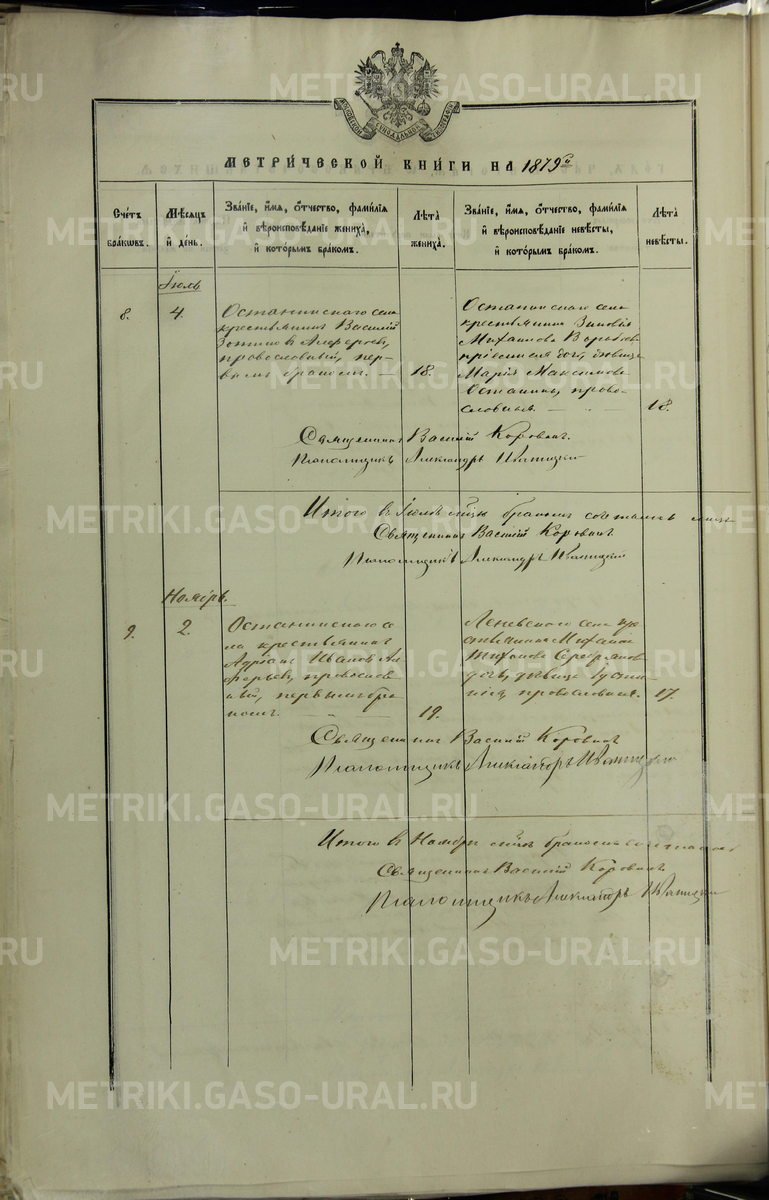 МОСКОВСКОЙ СѴНОДАЛЬНОЙ ТИПОГРАФІИ
МЕТРИ́ЧЕСКОЙ КНИ́ГИ НА 1879й
Сче́тъ бра́кѡвъ.
Мѣ́сяцъ и де́нь.
Зва́нїе, и́мя, ѻ́тчество, фами́лїя и вѣроисповѣ́данїе жениха̀, и кото́рымъ бра́комъ.
Лѣ́та жениха̀.
Зва́нїе, и́мя, ѻ́тчество, фами́лїя и вѣроисповѣ́данїе невѣ́сты, и кото́рымъ бра́комъ.
Лѣ́та невѣ́сты.
Іюль
8.
4.
Останинскаго села
крестьянинъ Василій
Зотиковъ Алферьевъ,
православный, пер-
вымъ бракомъ.
18.
Останинскаго села
крестьянина
Михайлова
дочь, дѣвица
Марія Максимова
Останина, право-
славная.
18.
Священникъ Василій Коровинъ.
Псаломщикъ Александръ Иваницкій
Итого в Іюлѣ м҃цѣ браком сочталось
Священникъ Василій Коровинъ
Псаломщикъ Александръ Иваницкій
Ноябрь.
9.
2.
Останинскаго се
ла крестьянинъ
Адріанъ Ивановъ Ал
ферьевъ, православ
ный, первымъ бра
комъ.
19.
Леневскаго села кре
стьянина Михаила
Тихонова Серебрянов
дочь, дѣвица
православная.
17.
Священникъ Василій Коровинъ
Псаломщикъ Александръ Иваницкій
Итого в Ноябрѣ м҃цѣ бракомъ сочталось
Священникъ Василій Коровинъ
Псаломщикъ Александръ Иваницкій
METRIKI.GASO-URAL.RU